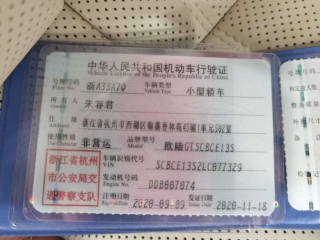 中华人民共和国机动车行驶证
Vehicle License of the People's Republic of China
号牌号码 浙A33A7Q 车辆类型 小型轿车
Plate No. Vehicle Type
所有人 朱谷君
Owner
住址
Address
使用性质 非营运 品牌型号 欧陆GTSCBCE13S
浙江省杭州 车辆识别代号
VIN SCBCE13S2LC077329
市公安局交 发动机号码
Engine No. DDB007074
通警察支队 注册日期 2020-09-09 发证日期 2020-11-18